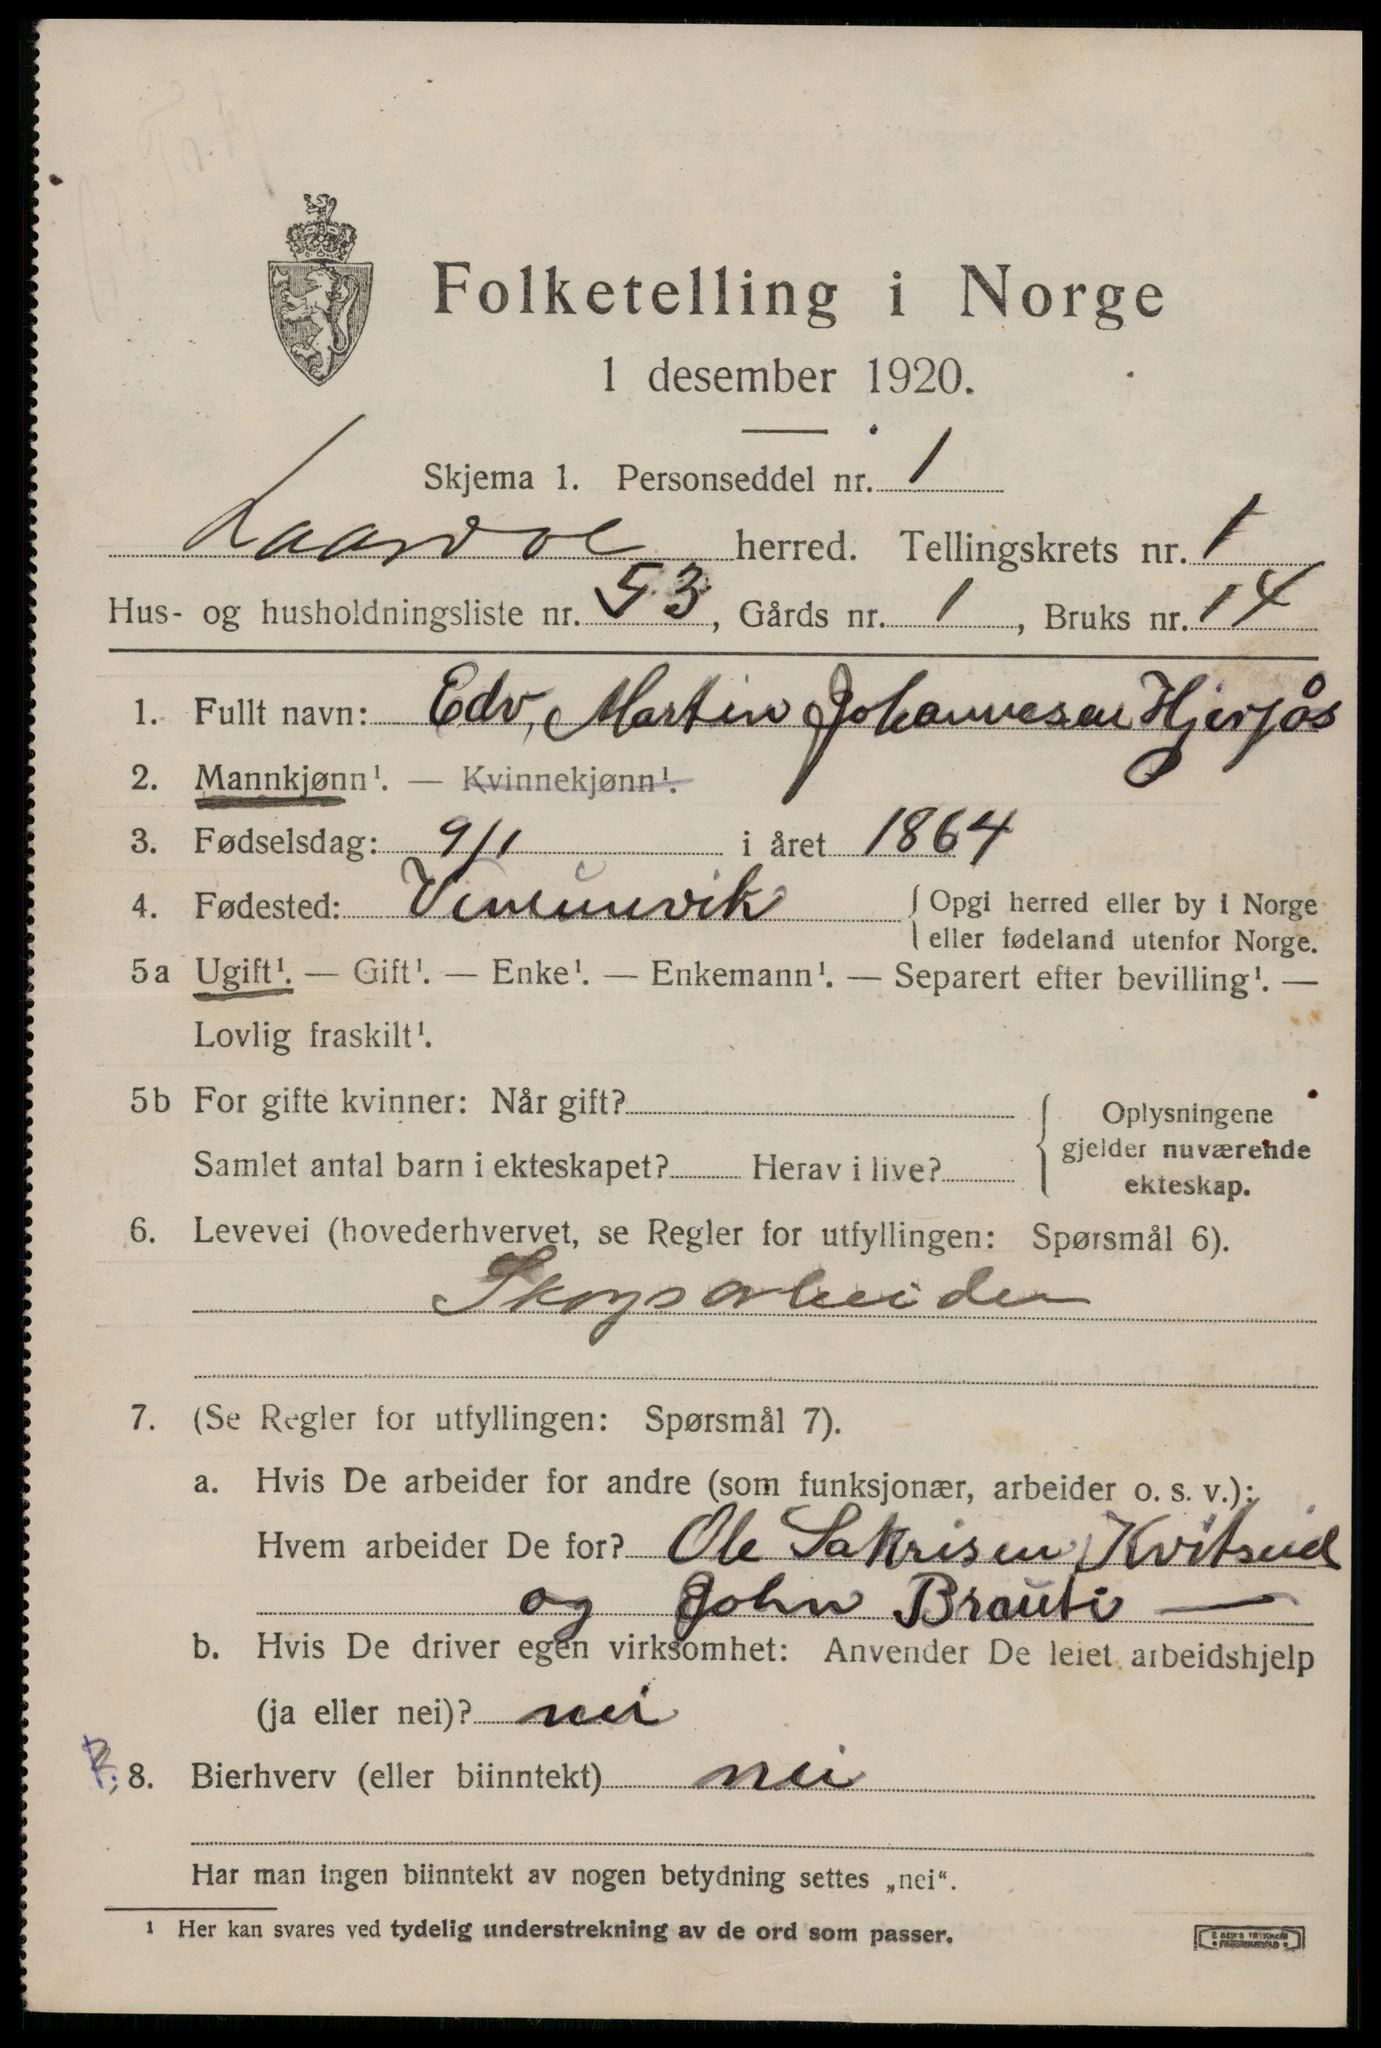 Folketelling i Norge
1 desember 1920.
Skjema 1. Personseddel nr. 1
Laardal herred. Tellingskrets nr. 1
Hus- og husholdningsliste nr. 53, Gårds nr. 1, Bruks nr. 14
1. Fullt navn: Edv. Martin Johannesen Hjersjøs
2. Mannkjønn¹. — Kvinnekjønn¹.
3. Fødselsdag: 9/1 i året 1864
4. Fødested: Vinumvik { Opgi herred eller by i Norge
eller fødeland utenfor Norge.
5a Ugift¹. — Gift¹. — Enke¹. — Enkemann¹. — Separert efter bevilling¹. —
Lovlig fraskilt¹.
5b For gifte kvinner: Når gift?
Samlet antal barn i ekteskapet? Herav i live?
{ Oplysningene
gjelder nuværende
ekteskap.
6. Levevei (hovederhvervet, se Regler for utfyllingen: Spørsmål 6).
Skogsarbeider
7. (Se Regler for utfyllingen: Spørsmål 7).
a. Hvis De arbeider for andre (som funksjonær, arbeider o. s. v.):
Hvem arbeider De for? Ole Sakrisen Kvitseid
og John Brauti —
b. Hvis De driver egen virksomhet: Anvender De leiet arbeidshjelp
(ja eller nei)? nei
8. Bierhverv (eller biinntekt) nei
Har man ingen biinntekt av nogen betydning settes „nei“.
¹ Her kan svares ved tydelig understrekning av de ord som passer.